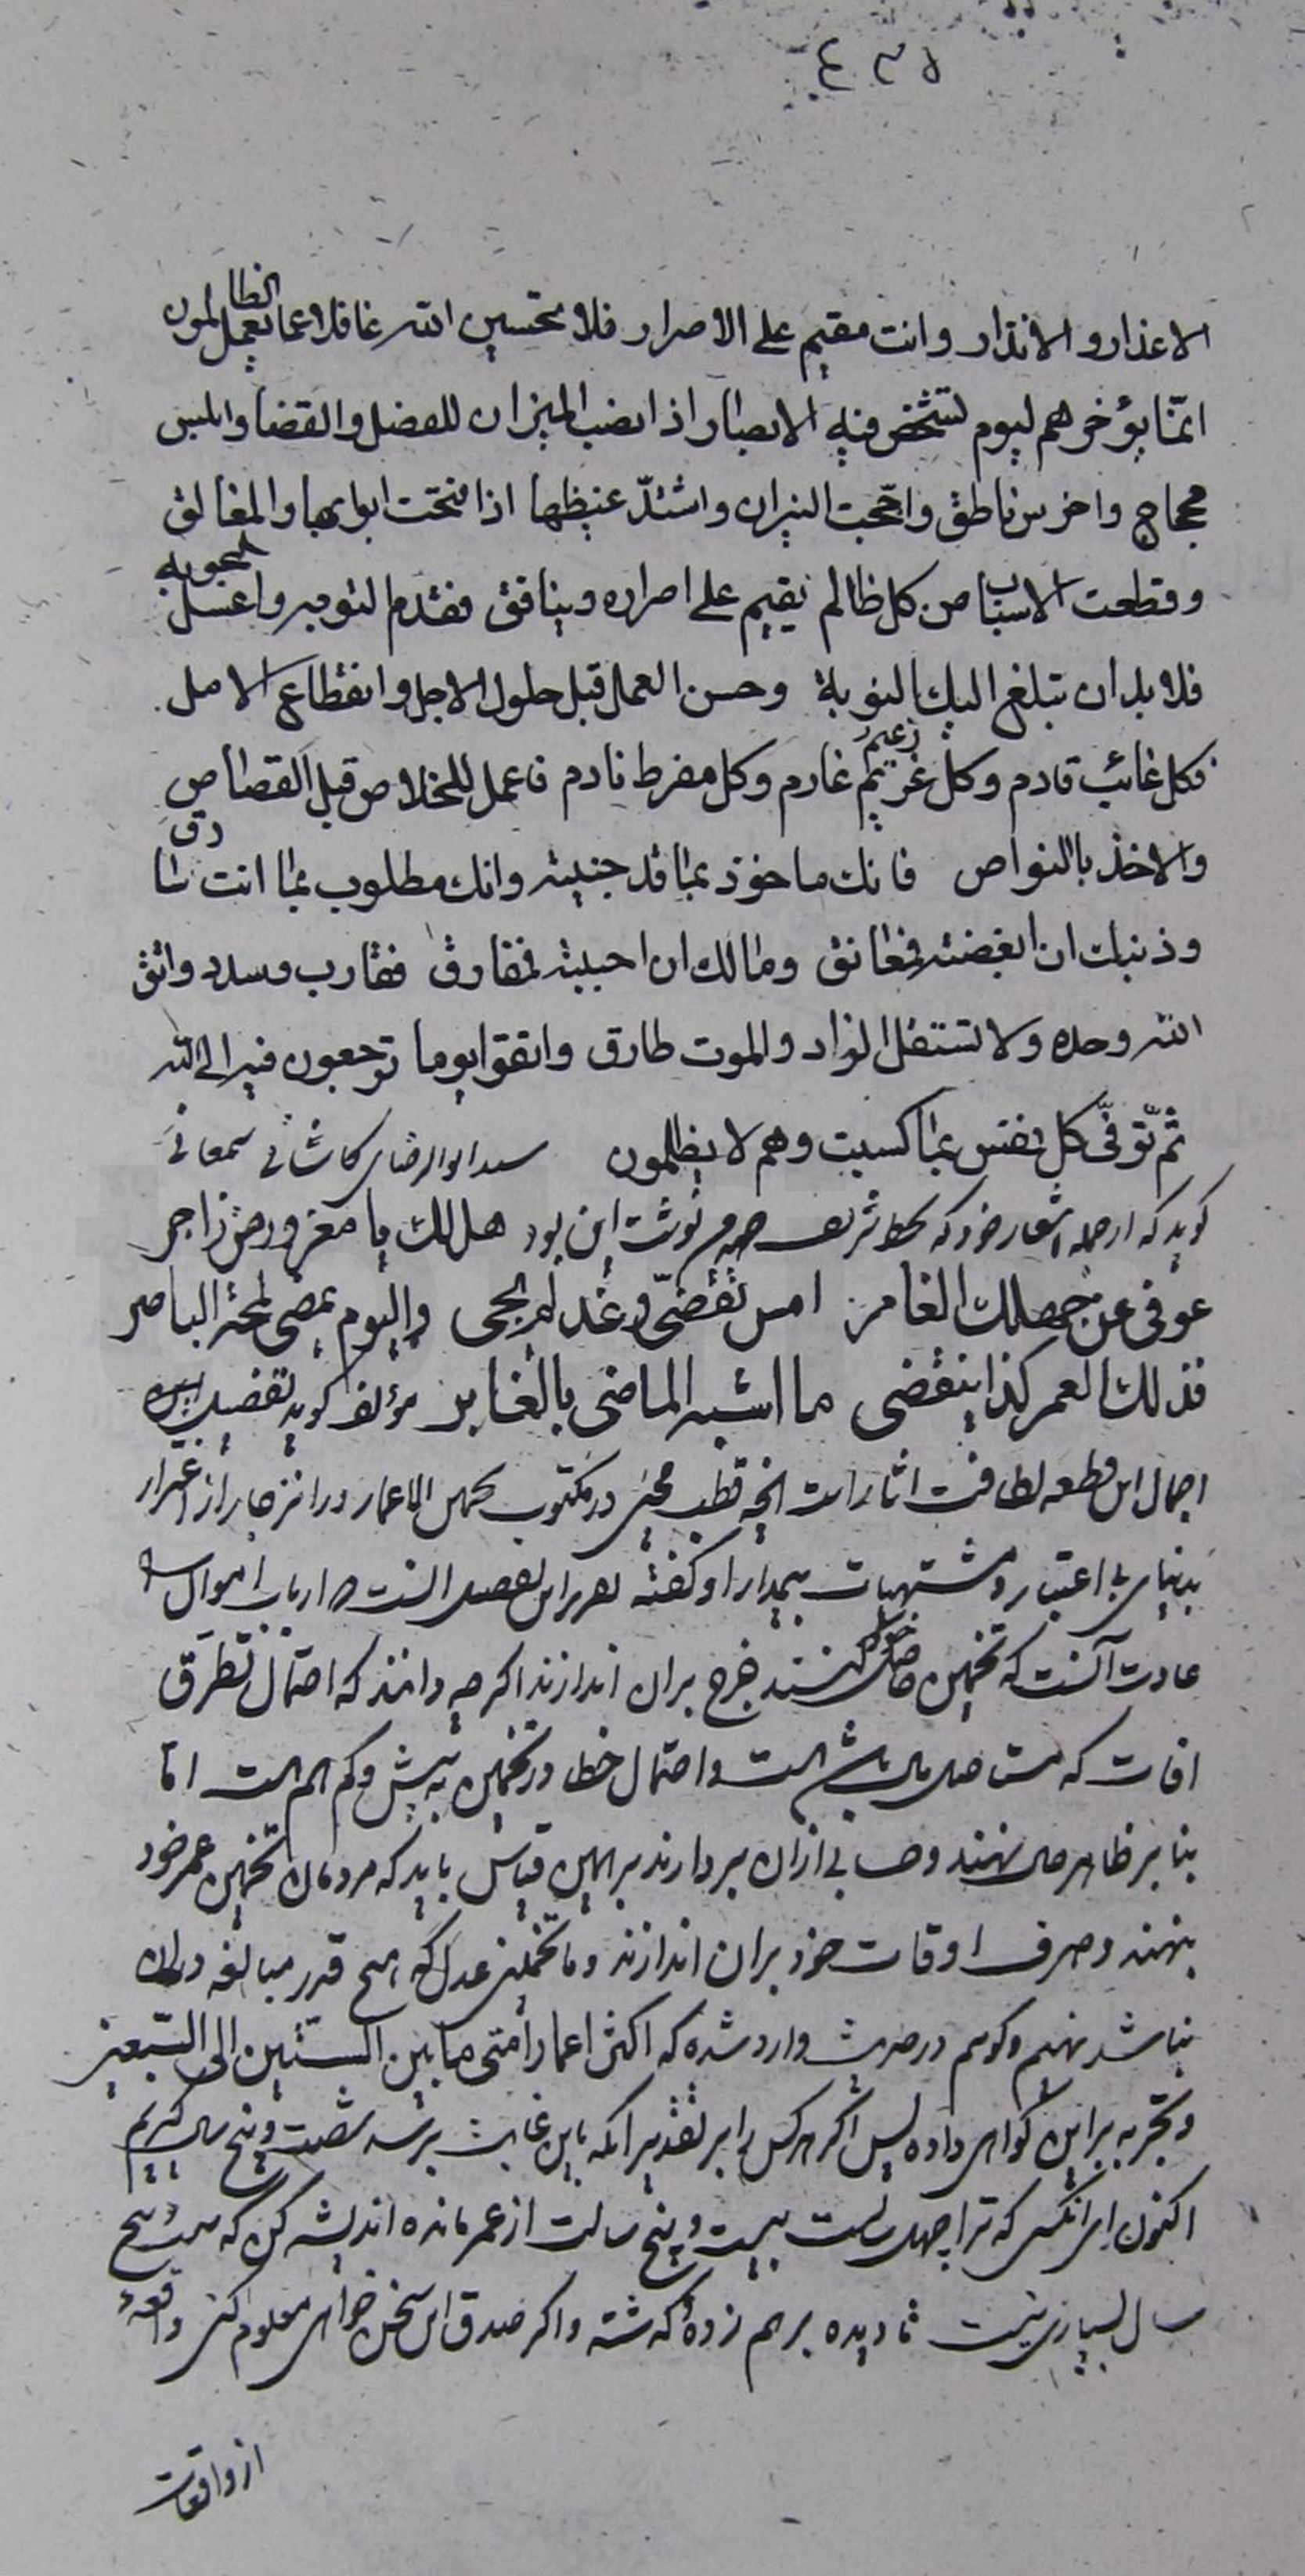 ٤٣٥
الاعذار و الانذار وانت مقيم على الاصرار فلا تحسبن الله غافلا عما يعمل الظالمون
انمّا يؤخرهم ليوم تشخص فيه الابصار اذا نصب الميزان للفصل والقضا وابلس
محجاج واخرس ناطق واجّجت النيران واشتدّ غيظها اذا فتحت ابوابها والمغالق
وقطعت الاسباب من كل ظالم يقيم على اصراره وينافق فقدم التوبه واغسل الحوبه
فلا بد ان تبلغ اليك النوبة وحسن العمل قبل حلول الاجل وانقطاع الامل
فكل غائب قادم وكل غريم زعيم غارم وكل مفرط نادم فاعمل للخلاص قبل القصاص
والاخذ بالنواص فانك ماخوذ بما قد جنيته وانك مطلوب بما انت سارق
وذنبك ان ابغضته فمعانق ومالك ان احببته فمفارق فقارب وسدد واتق
الله وحده ولا تستقل الزاد والموت طارق واتقوا يوما ترجعون فيه الى الله
ثمّ توفّى كل نفس بما كسبت وهم لا يظلمون سيد ابو الرضاى كاشانى سمعانى
كويد كه از جمله اشعار خود كه بخط شريف نوشت اين بود هل لك يا مغرور من زاجر
عوفى عن جهلك الغامر امس تقضّى وغد لم يجى واليوم يمضى لمحة الباصر
فذلك العمر كذا ينقضى ما اشبه الماضى بالغابر مؤلف كويد تفصيل
اجمال اين قطعه لطافت اثار است انچه قطب محيى در مكتوب تخمين الاعمار در انزجار از اغترار
بدنياى بى اعتبار و مشتهيات بيمدار او كفته تقرير اين تفصيل انست كه ارباب اموال را
عادت آنست كه تخمين حاصل خود كنند خرج بران اندازند اكر چه دانند كه احتمال تطرق
افات كه مستاصل مال باشد هست و احتمال خطا در تخمين به بيش و كم هم هست اما
بنا بر ظاهر حال نهند و حسابى ازان بردارند بر همين قياس بايد كه مردمان تخمين عمر خود
بنهند و صرف اوقات خود بران اندازند و ما تخمينى عدل كه هيچ قدر مبالغه دران
نباشد نهيم و كوئيم در حديث وارد شده كه اكثر اعمار امتى ما بين الستين الى السبعين
و تجربه بر اين كواهى داده پس اكر هر كس را بر تقدير انكه باين غايت برسد شصت و پنج سال كيريم
اكنون اى انكس كه ترا چهل سالست بيست و پنج سالت از عمر مانده انديشه كن كه بيست و پنج
سال بسيارى نيست تا ديده بر هم زده كذشته و اكر صدق اين سخن خواهى معلوم كنى واقعه
از واقعات